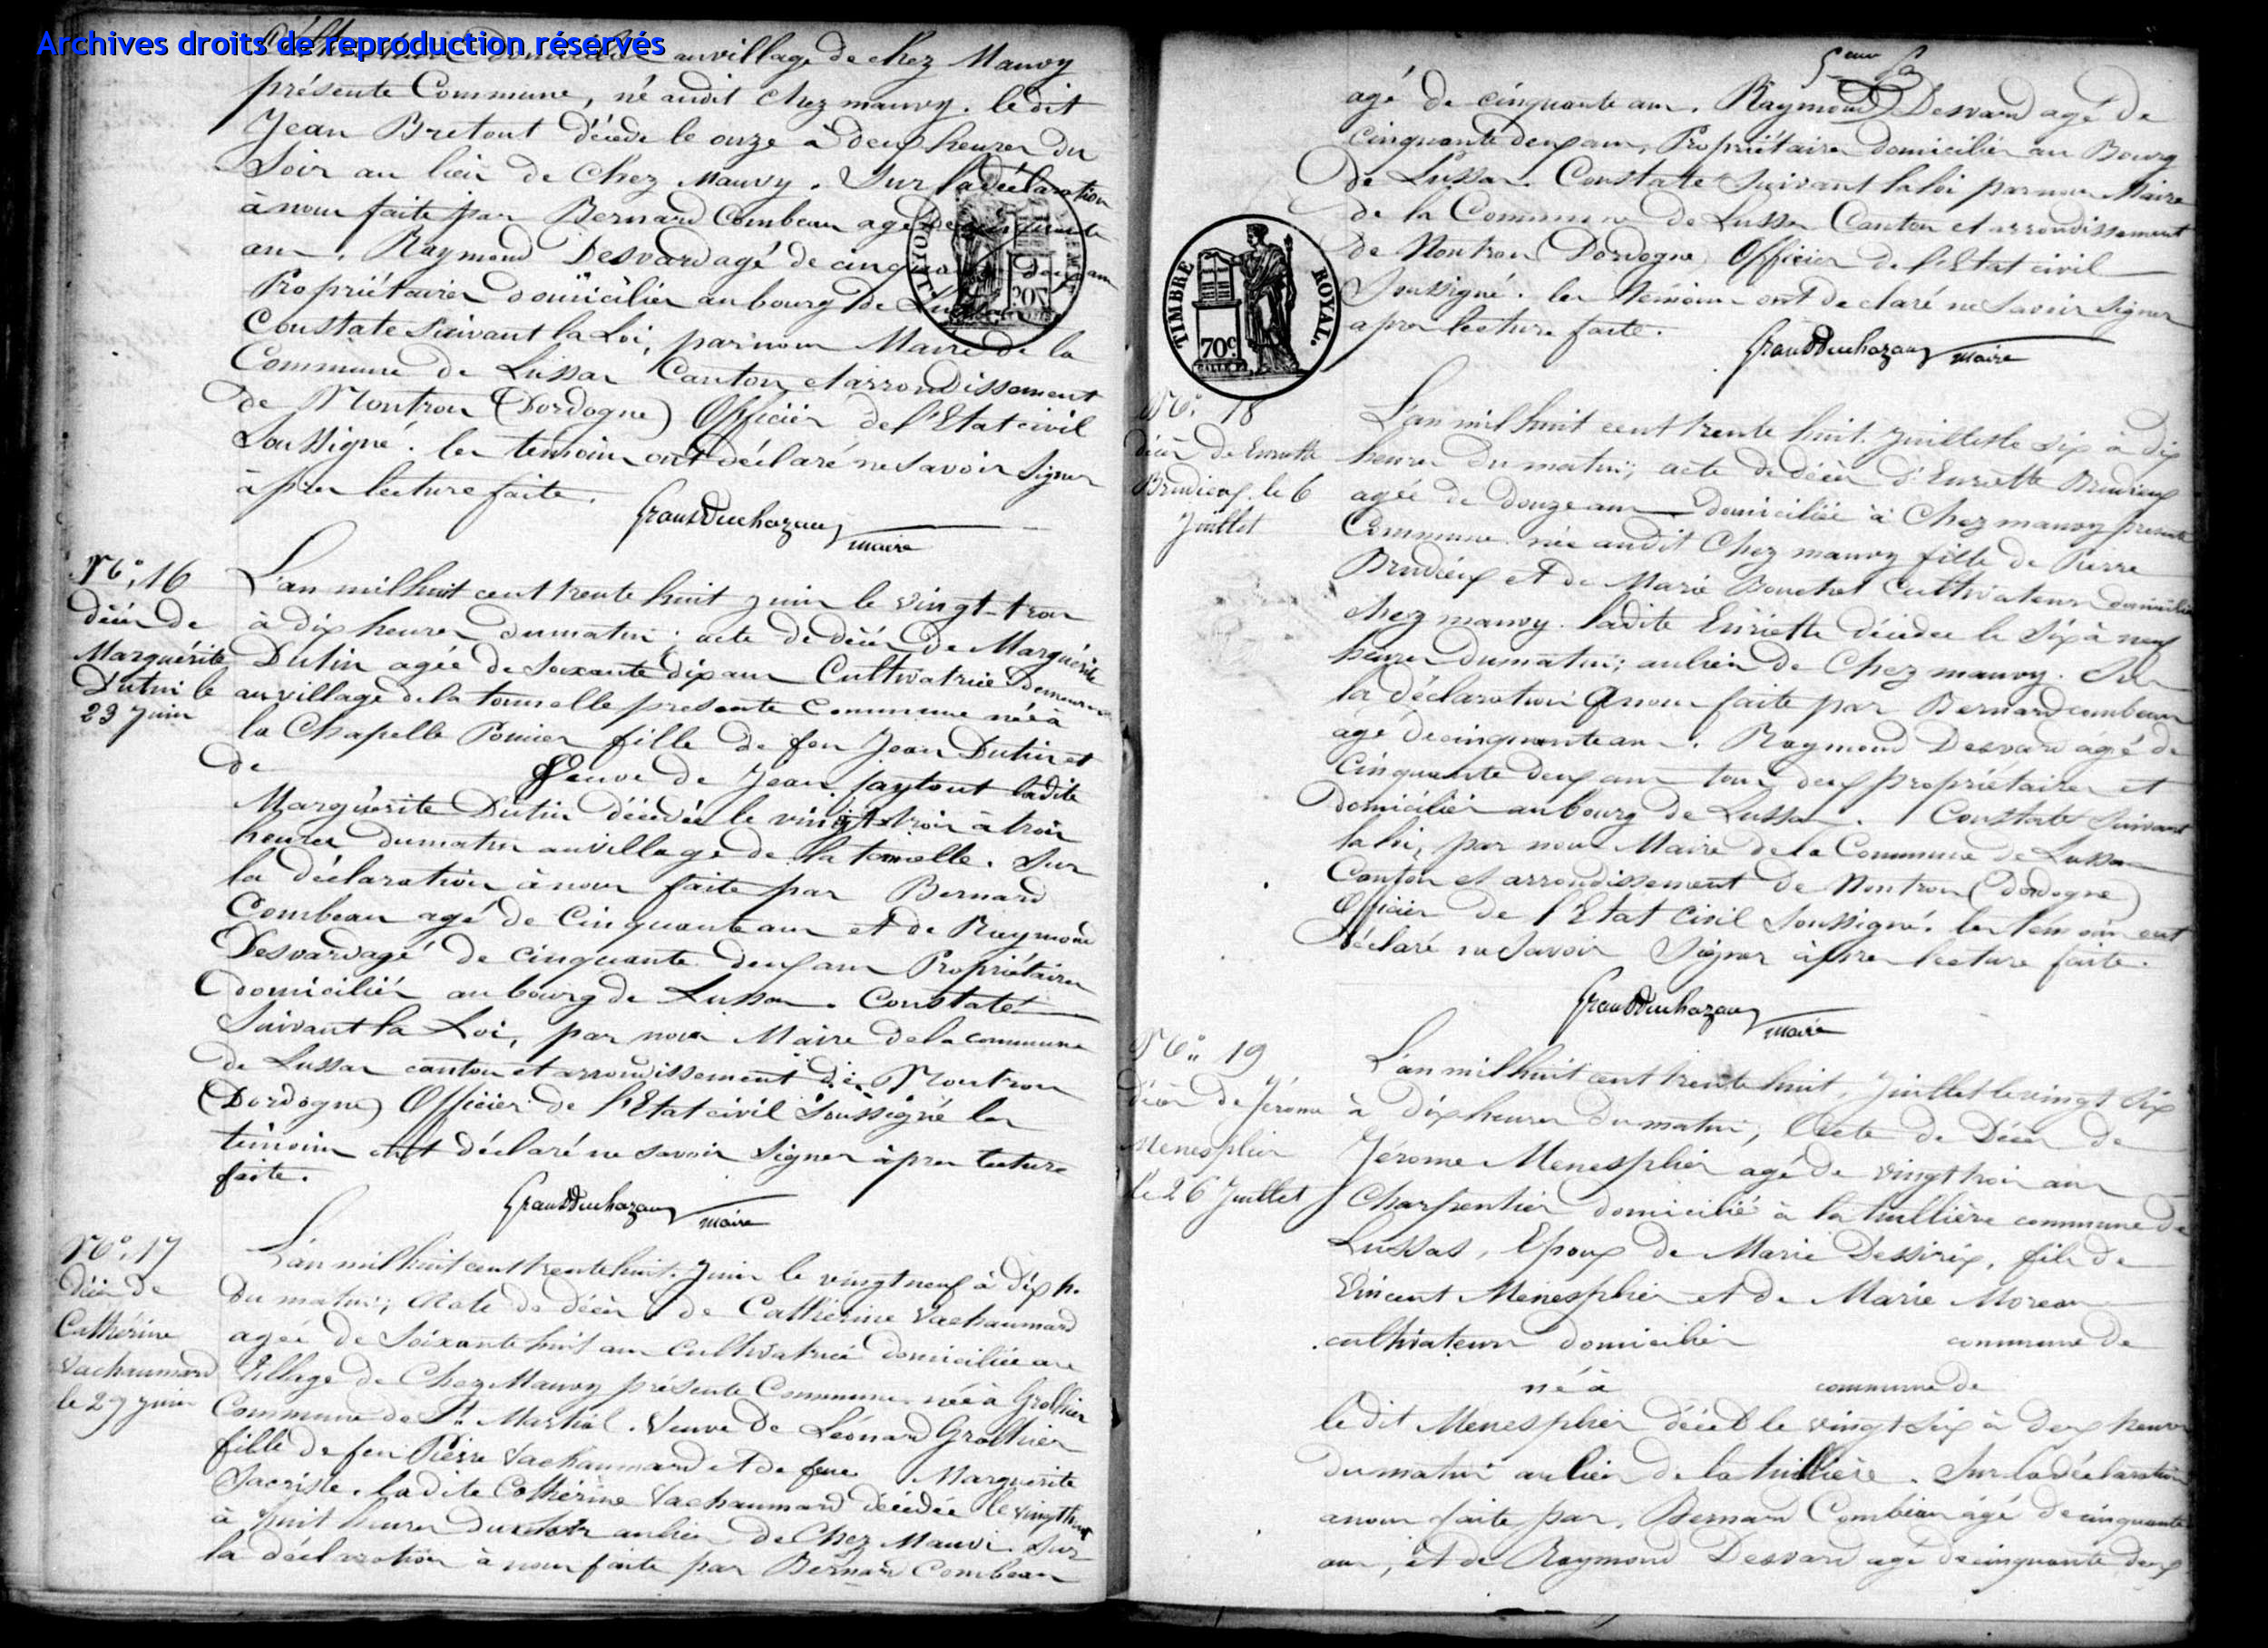 Archives droits de reproduction réservés
au village de chez Mauvy
présente Commune, né audit chez mauvy. ledit
Jean Bretout décédé le onze à deux heures du
Soir au lieu de Chez Mauvy. Sur la déclaration
à nous faite par Bernard Combeau agé de cinquante
ans, Raymond Desvard agé de cinquante deux ans
Propriétaires domiciliés au bourg de Lussas
Constaté Suivant la Loi, par nous Maire de la
Commune de Lussas Canton et arrondissement
de Nontron (Dordogne) Officier de l'Etat civil
Soussigné. les temoins ont déclaré ne Savoir Signer
après lecture faite.
Grand Duchazaud maire
N°. 16
décès de
Marguérite
Dutin le
23 Juin
L'an mil huit cent trente huit juin le vingt-trois
à dix heures du matin; acte de décès de Marguérite
Dutin agée de Soixante dix ans Cultivatrice Demeurant
au village de la tournelle présente Commune née à
la Chapelle Pomier fille de feu Jean Dutin et
de veuve de Jean faytout ladite
Marguérite Dutin décédée le vingt trois à trois
heures du matin au village de la tournelle. Sur
la déclaration à nous faite par Bernard
Combeau agé de Cinquante ans et de Raymond
Desvard agé de cinquante deux ans Propriétaires
domiciliés au bourg de Lussas. Constaté
Suivant la Loi, par nous Maire de la commune
de Lussas canton et arrondissement de Nontron
(Dordogne) Officier de l'Etat civil Soussigné les
témoins ont déclaré ne Savoir Signer après lecture
faite.
Grand Duchazaud maire
N°. 17
Décès de
Cathérine
Vachaumard
le 29 juin
L'an mil huit cent trente huit. Juin le vingt neuf à dix h.
du matin; Acte de décès de Cathérine Vachaumard
agée de Soixante huit ans Cultivatrice domiciliée au
Village de Chez Mauvy présente Commune née à Grolhier
Commune de St. Martial. Veuve de Léonard Grolhier
fille de feu Pierre Vachaumard et de feue Marguerite
Sacriste. ladite Cathérine Vachaumard décédée le vingt huit
à huit heures du Soir au lieu de Chez Mauvi. Sur
la déclaration à nous faite par Bernard Combeau
agé de cinquante ans. Raymond Desvard agé de
Cinquante deux ans, Propriétaires domiciliés au Bourg
de Lussas. Constaté Suivant la loi par nous Maire
de la Commune de Lussas Canton et arrondissement
de Nontron (Dordogne) Officier de l'Etat civil
Soussigné. les témoins ont déclaré ne Savoir Signer
après lecture faite.
Grand Duchazaud maire
TIMBRE ROYAL.
70c
N°. 18
décès de Enriette
Brudieux le 6
Juillet
L'an mil huit cent trente huit. Juillet le Six à dix
heures du matin; acte de décès d'Enriette Brudieux
agée de Douze ans domiciliée à Chez mauvy présente
Commune née audit Chez mauvy fille de Pierre
Brudieux et de Marie Bouchet Cultivateurs domiciliés
chez mauvy. ladite Enriette décédée le Six à neuf
heures du matin; au lieu de Chez mauvy. Sur
la déclaration à nous faite par Bernard combeau
agé de cinquante ans. Raymond Desvard agé de
Cinquante deux ans tous deux propriétaires et
domiciliés au bourg de Lussas. Constaté Suivant
la loi, par nous Maire de la Commune de Lussas
Canton et arrondissement de Nontron (Dordogne)
Officier de l'Etat Civil Soussigné. les témoins ont
déclaré ne Savoir Signer après lecture faite.
Grand Duchazaud maire
N°. 19
décès de Jérome
Menesplier
le 26 Juillet
L'an mil huit cent trente huit, Juillet le vingt Six
à Dix heures du matin; Acte de Décès de
Jérome Menesplier agé de vingt trois ans
Charpentier domicilié à la tuillière commune de
Lussas, Epoux de Marie Dessirix, fils de
Vincent Menesplier et de Marie Moreau
cultivateurs domiciliés commune de
né à commune de
le dit Menesplier décédé le vingt Six à deux heures
du matin au lieu de la tuillière. Sur la déclaration
à nous faite par, Bernard Combeau agé de cinquante
ans, et de Raymond Desvard agé de cinquante deux